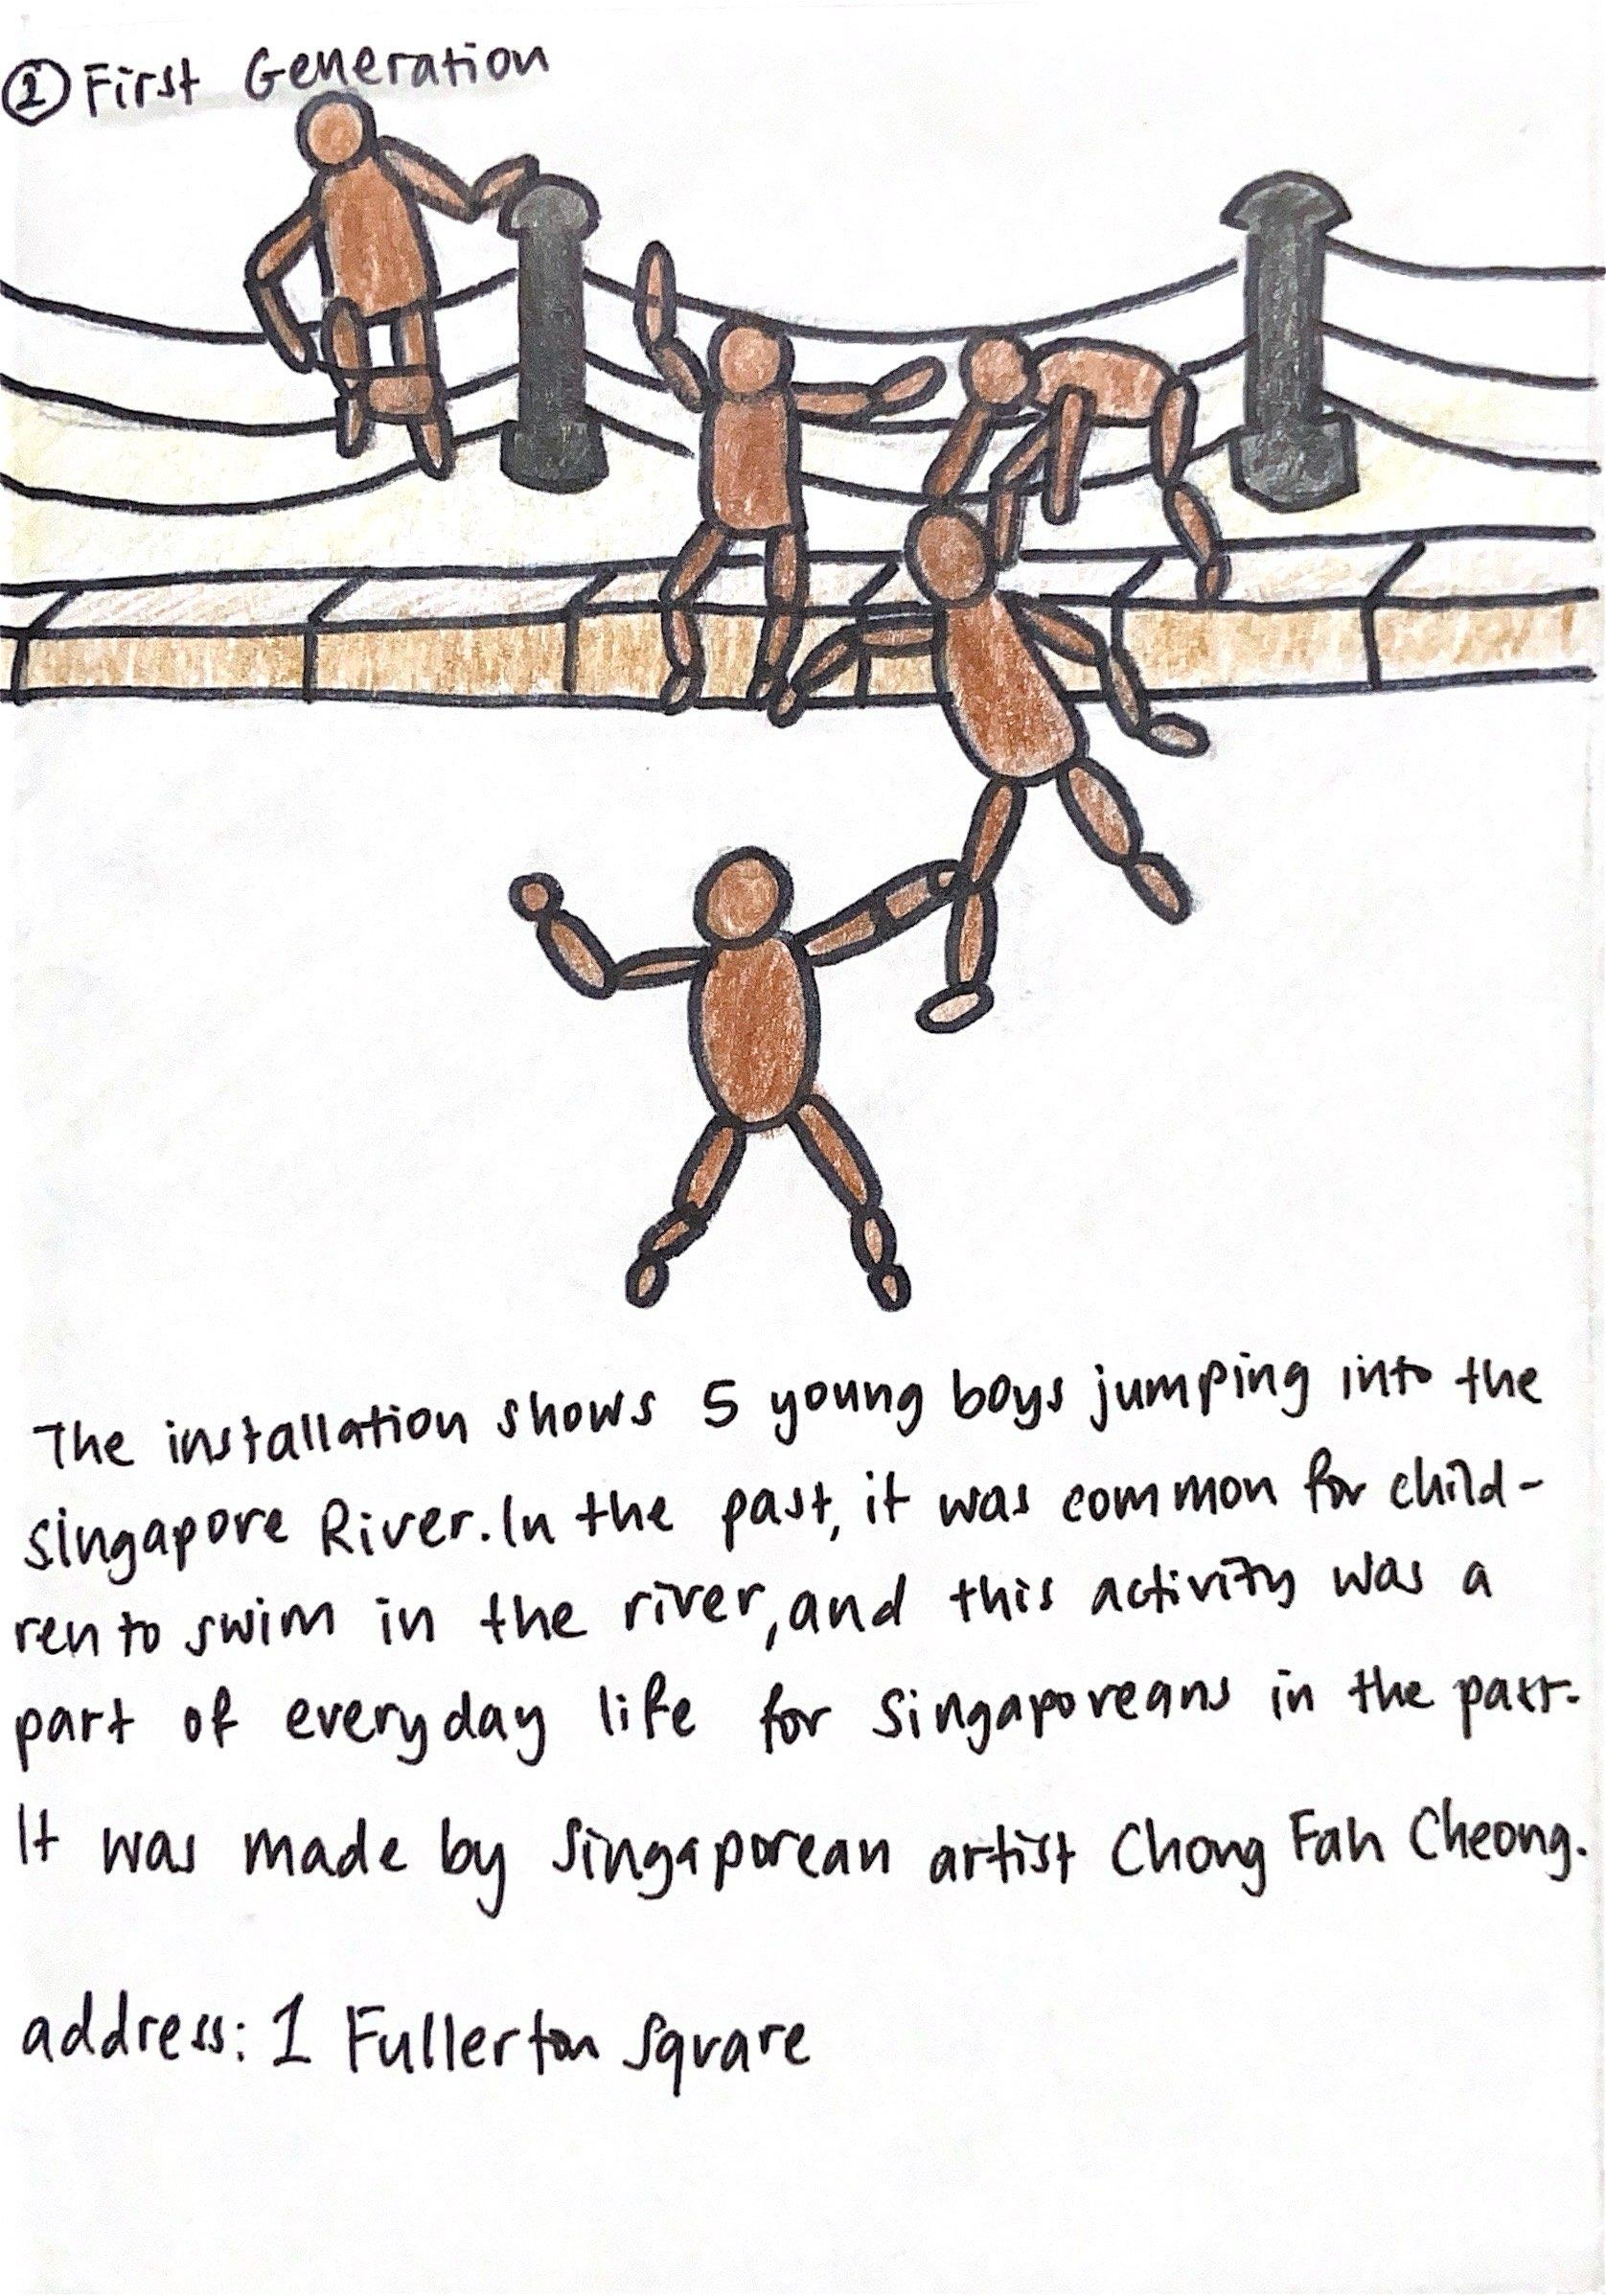 ② First Generation
The installation shows 5 young boys jumping into the
Singapore River. In the past, it was common for child-
ren to swim in the river, and this activity was a
part of everyday life for Singaporeans in the past.
It was made by Singaporean artist Chong Fah Cheong.
address: 1 Fullerton Square